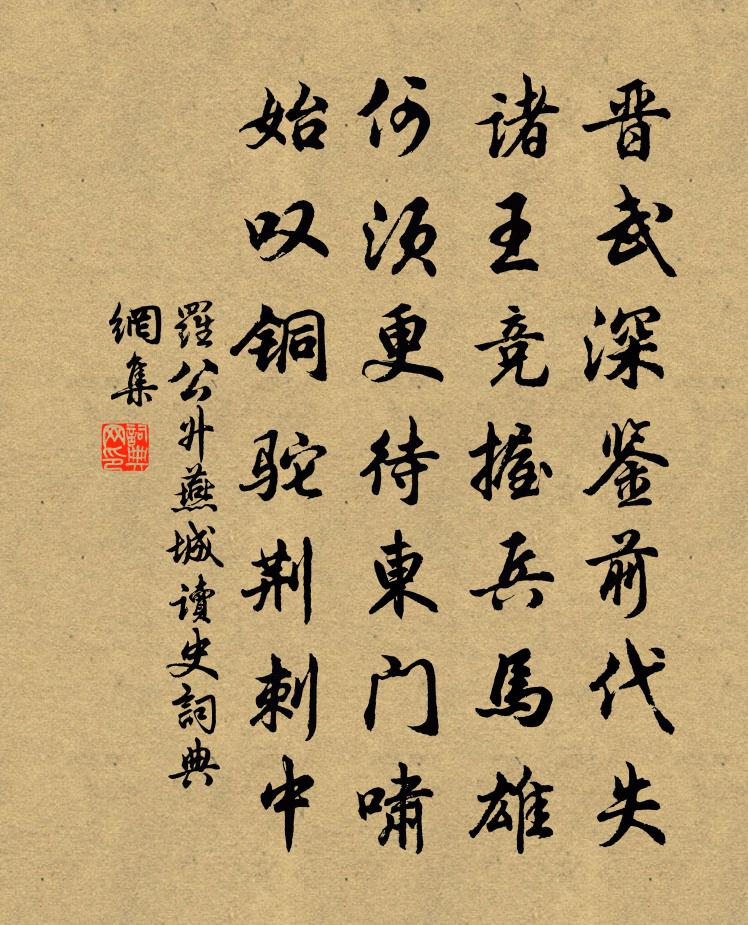 晋武深鉴前代失
诸王竞握兵馬雄
何须更待東门啸
始叹铜驼荆刺中
羅公升燕城讀史詞典
網集
詞典
网印